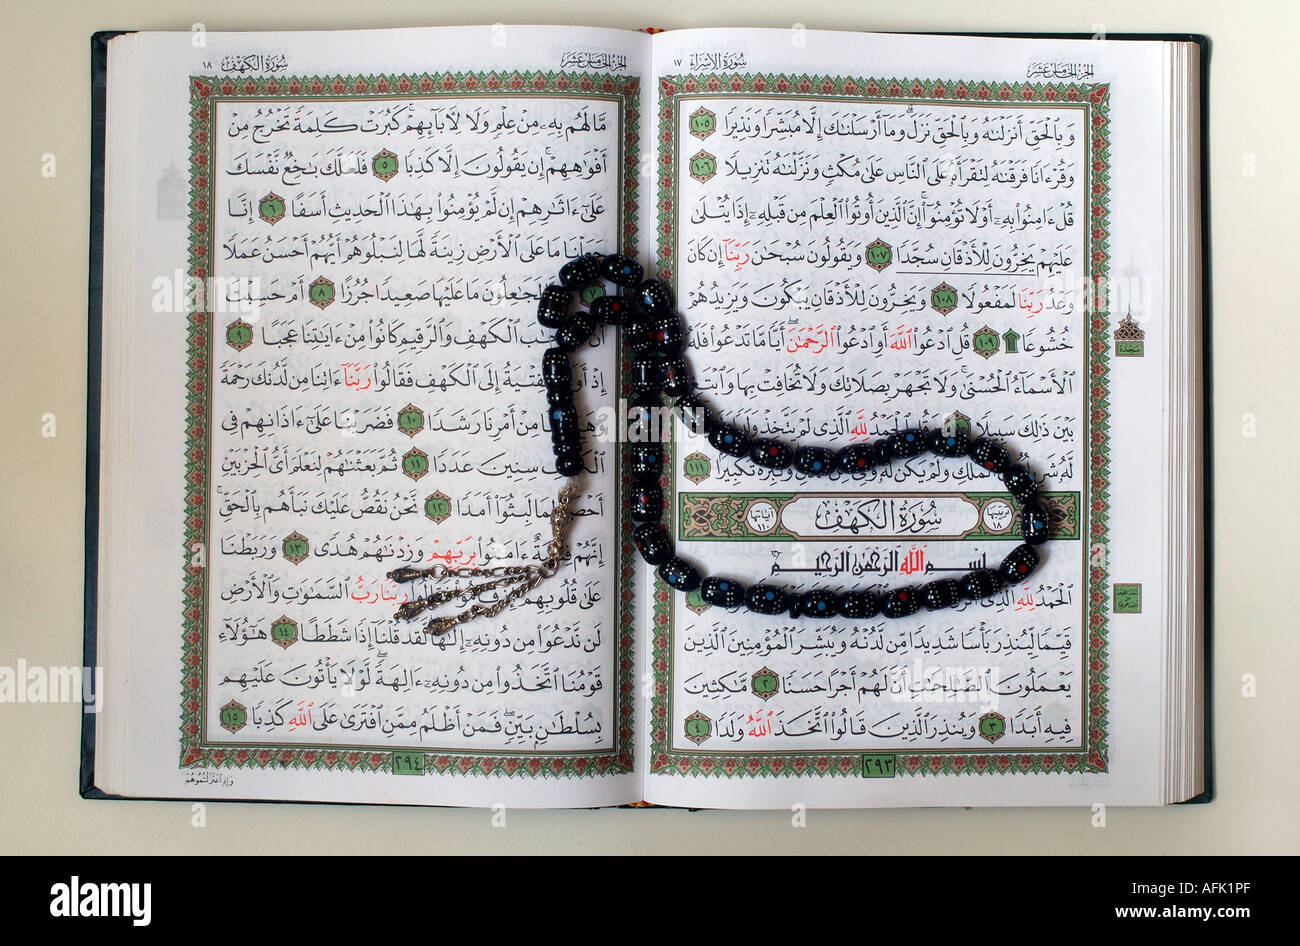 الجزء الخامس عشر
سورة الإسراء ١٧
وَبِٱلْحَقِّ أَنزَلْنَٰهُ وَبِٱلْحَقِّ نَزَلَ ۗ وَمَآ أَرْسَلْنَٰكَ إِلَّا مُبَشِّرًا وَنَذِيرًا ١٠٥
وَقُرْءَانًا فَرَقْنَٰهُ لِتَقْرَأَهُۥ عَلَى ٱلنَّاسِ عَلَىٰ مُكْثٍ وَنَزَّلْنَٰهُ تَنزِيلًا ١٠٦
قُلْ ءَامِنُوا۟ بِهِۦٓ أَوْ لَا تُؤْمِنُوٓا۟ ۚ إِنَّ ٱلَّذِينَ أُوتُوا۟ ٱلْعِلْمَ مِن قَبْلِهِۦٓ إِذَا يُتْلَىٰ
عَلَيْهِمْ يَخِرُّونَ لِلْأَذْقَانِ سُجَّدًا ١٠٧ وَيَقُولُونَ سُبْحَٰنَ رَبِّنَآ إِن كَانَ
وَعْدُ رَبِّنَا لَمَفْعُولًا ١٠٨ وَيَخِرُّونَ لِلْأَذْقَانِ يَبْكُونَ وَيَزِيدُهُمْ
خُشُوعًا ۩ ١٠٩ قُلِ ٱدْعُوا۟ ٱللَّهَ أَوِ ٱدْعُوا۟ ٱلرَّحْمَٰنَ ۖ أَيًّا مَّا تَدْعُوا۟ فَلَهُ
ٱلْأَسْمَآءُ ٱلْحُسْنَىٰ ۚ وَلَا تَجْهَرْ بِصَلَاتِكَ وَلَا تُخَافِتْ بِهَا وَٱبْتَغِ
بَيْنَ ذَٰلِكَ سَبِيلًا ٱلْحَمْدُ لِلَّهِ ٱلَّذِى لَمْ يَتَّخِذْ
ٱلْمُلْكِ وَلَمْ يَكُن لَّهُۥ وَكَبِّرْهُ تَكْبِيرًۢا ١١١
ترتيبها ١٨
سُورَةُ الكَهْفِ
آياتها ١١٠
بِسْمِ ٱللَّهِ ٱلرَّحْمَٰنِ ٱلرَّحِيمِ
ٱلْحَمْدُ لِلَّهِ ٱلَّذِىٓ
قَيِّمًا لِّيُنذِرَ بَأْسًا شَدِيدًا مِّن لَّدُنْهُ وَيُبَشِّرَ ٱلْمُؤْمِنِينَ ٱلَّذِينَ
يَعْمَلُونَ ٱلصَّٰلِحَٰتِ أَنَّ لَهُمْ أَجْرًا حَسَنًا ٢ مَّٰكِثِينَ
فِيهِ أَبَدًا ٣ وَيُنذِرَ ٱلَّذِينَ قَالُوا۟ ٱتَّخَذَ ٱللَّهُ وَلَدًا ٤
٢٩٣
سجدة
الجزء الخامس عشر
سورة الكهف ١٨
مَّا لَهُم بِهِۦ مِنْ عِلْمٍ وَلَا لِءَابَآئِهِمْ ۚ كَبُرَتْ كَلِمَةً تَخْرُجُ مِنْ
أَفْوَٰهِهِمْ ۚ إِن يَقُولُونَ إِلَّا كَذِبًا ٥ فَلَعَلَّكَ بَٰخِعٌ نَّفْسَكَ
عَلَىٰٓ ءَاثَٰرِهِمْ إِن لَّمْ يُؤْمِنُوا۟ بِهَٰذَا ٱلْحَدِيثِ أَسَفًا ٦ إِنَّا
جَعَلْنَا مَا عَلَى ٱلْأَرْضِ زِينَةً لَّهَا لِنَبْلُوَهُمْ أَيُّهُمْ أَحْسَنُ عَمَلًا
٧ لَجَٰعِلُونَ مَا عَلَيْهَا صَعِيدًا جُرُزًا ٨ أَمْ حَسِبْتَ
أَنَّ ٱلْكَهْفِ وَٱلرَّقِيمِ كَانُوا۟ مِنْ ءَايَٰتِنَا عَجَبًا ٩
إِذْ أَوَى ٱلْفِتْيَةُ إِلَى ٱلْكَهْفِ فَقَالُوا۟ رَبَّنَآ ءَاتِنَا مِن لَّدُنكَ رَحْمَةً
وَهَيِّئْ لَنَا مِنْ أَمْرِنَا رَشَدًا ١٠ فَضَرَبْنَا عَلَىٰٓ ءَاذَانِهِمْ فِى
ٱلْكَهْفِ سِنِينَ عَدَدًا ١١ ثُمَّ بَعَثْنَٰهُمْ لِنَعْلَمَ أَىُّ ٱلْحِزْبَيْنِ
أَحْصَىٰ لِمَا لَبِثُوٓا۟ أَمَدًا ١٢ نَّحْنُ نَقُصُّ عَلَيْكَ نَبَأَهُم بِٱلْحَقِّ ۚ
إِنَّهُمْ فِتْيَةٌ ءَامَنُوا۟ بِرَبِّهِمْ وَزِدْنَٰهُمْ هُدًى ١٣ وَرَبَطْنَا
عَلَىٰ قُلُوبِهِمْ فَقَالُوا۟ رَبُّنَا رَبُّ ٱلسَّمَٰوَٰتِ وَٱلْأَرْضِ
لَن نَّدْعُوَا۟ مِن دُونِهِۦٓ إِلَٰهًا ۖ لَّقَدْ قُلْنَآ إِذًا شَطَطًا ١٤ هَٰٓؤُلَآءِ
قَوْمُنَا ٱتَّخَذُوا۟ مِن دُونِهِۦٓ ءَالِهَةً ۖ لَّوْلَا يَأْتُونَ عَلَيْهِم
بِسُلْطَٰنٍۭ بَيِّنٍ ۖ فَمَنْ أَظْلَمُ مِمَّنِ ٱفْتَرَىٰ عَلَى ٱللَّهِ كَذِبًا ١٥
٢٩٤
وَإِذِ ٱعْتَزَلْتُمُوهُمْ
alamy
alamy
Image ID: AFK1PF
www.alamy.com